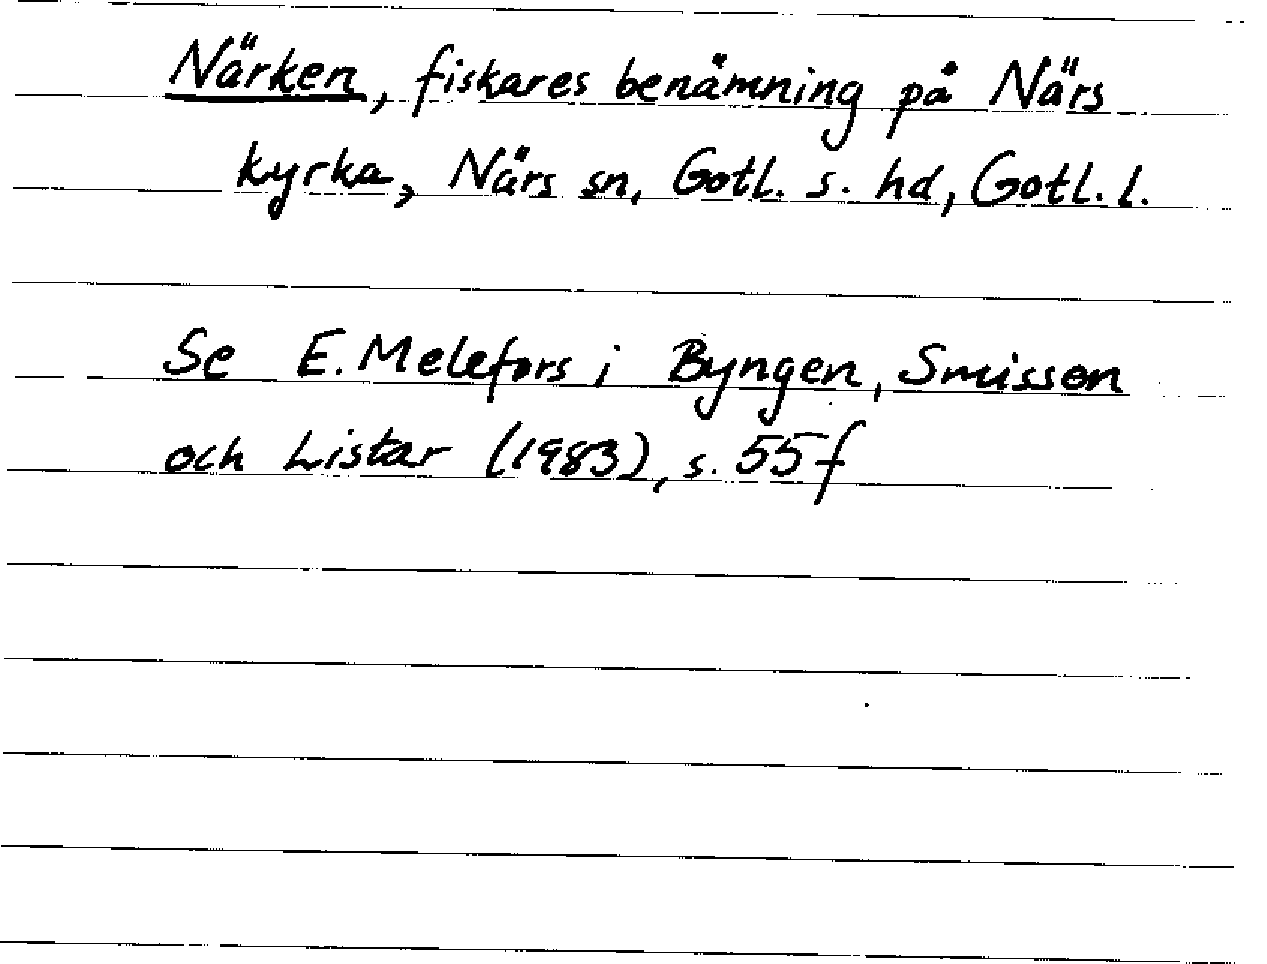 Närken, fiskares benämning på Närs
kyrka, Närs sn, Gotl. s. hd, Gotl. l.
Se E. Melefors i Byngen, Smisson
och Listar (1983), s. 55 f